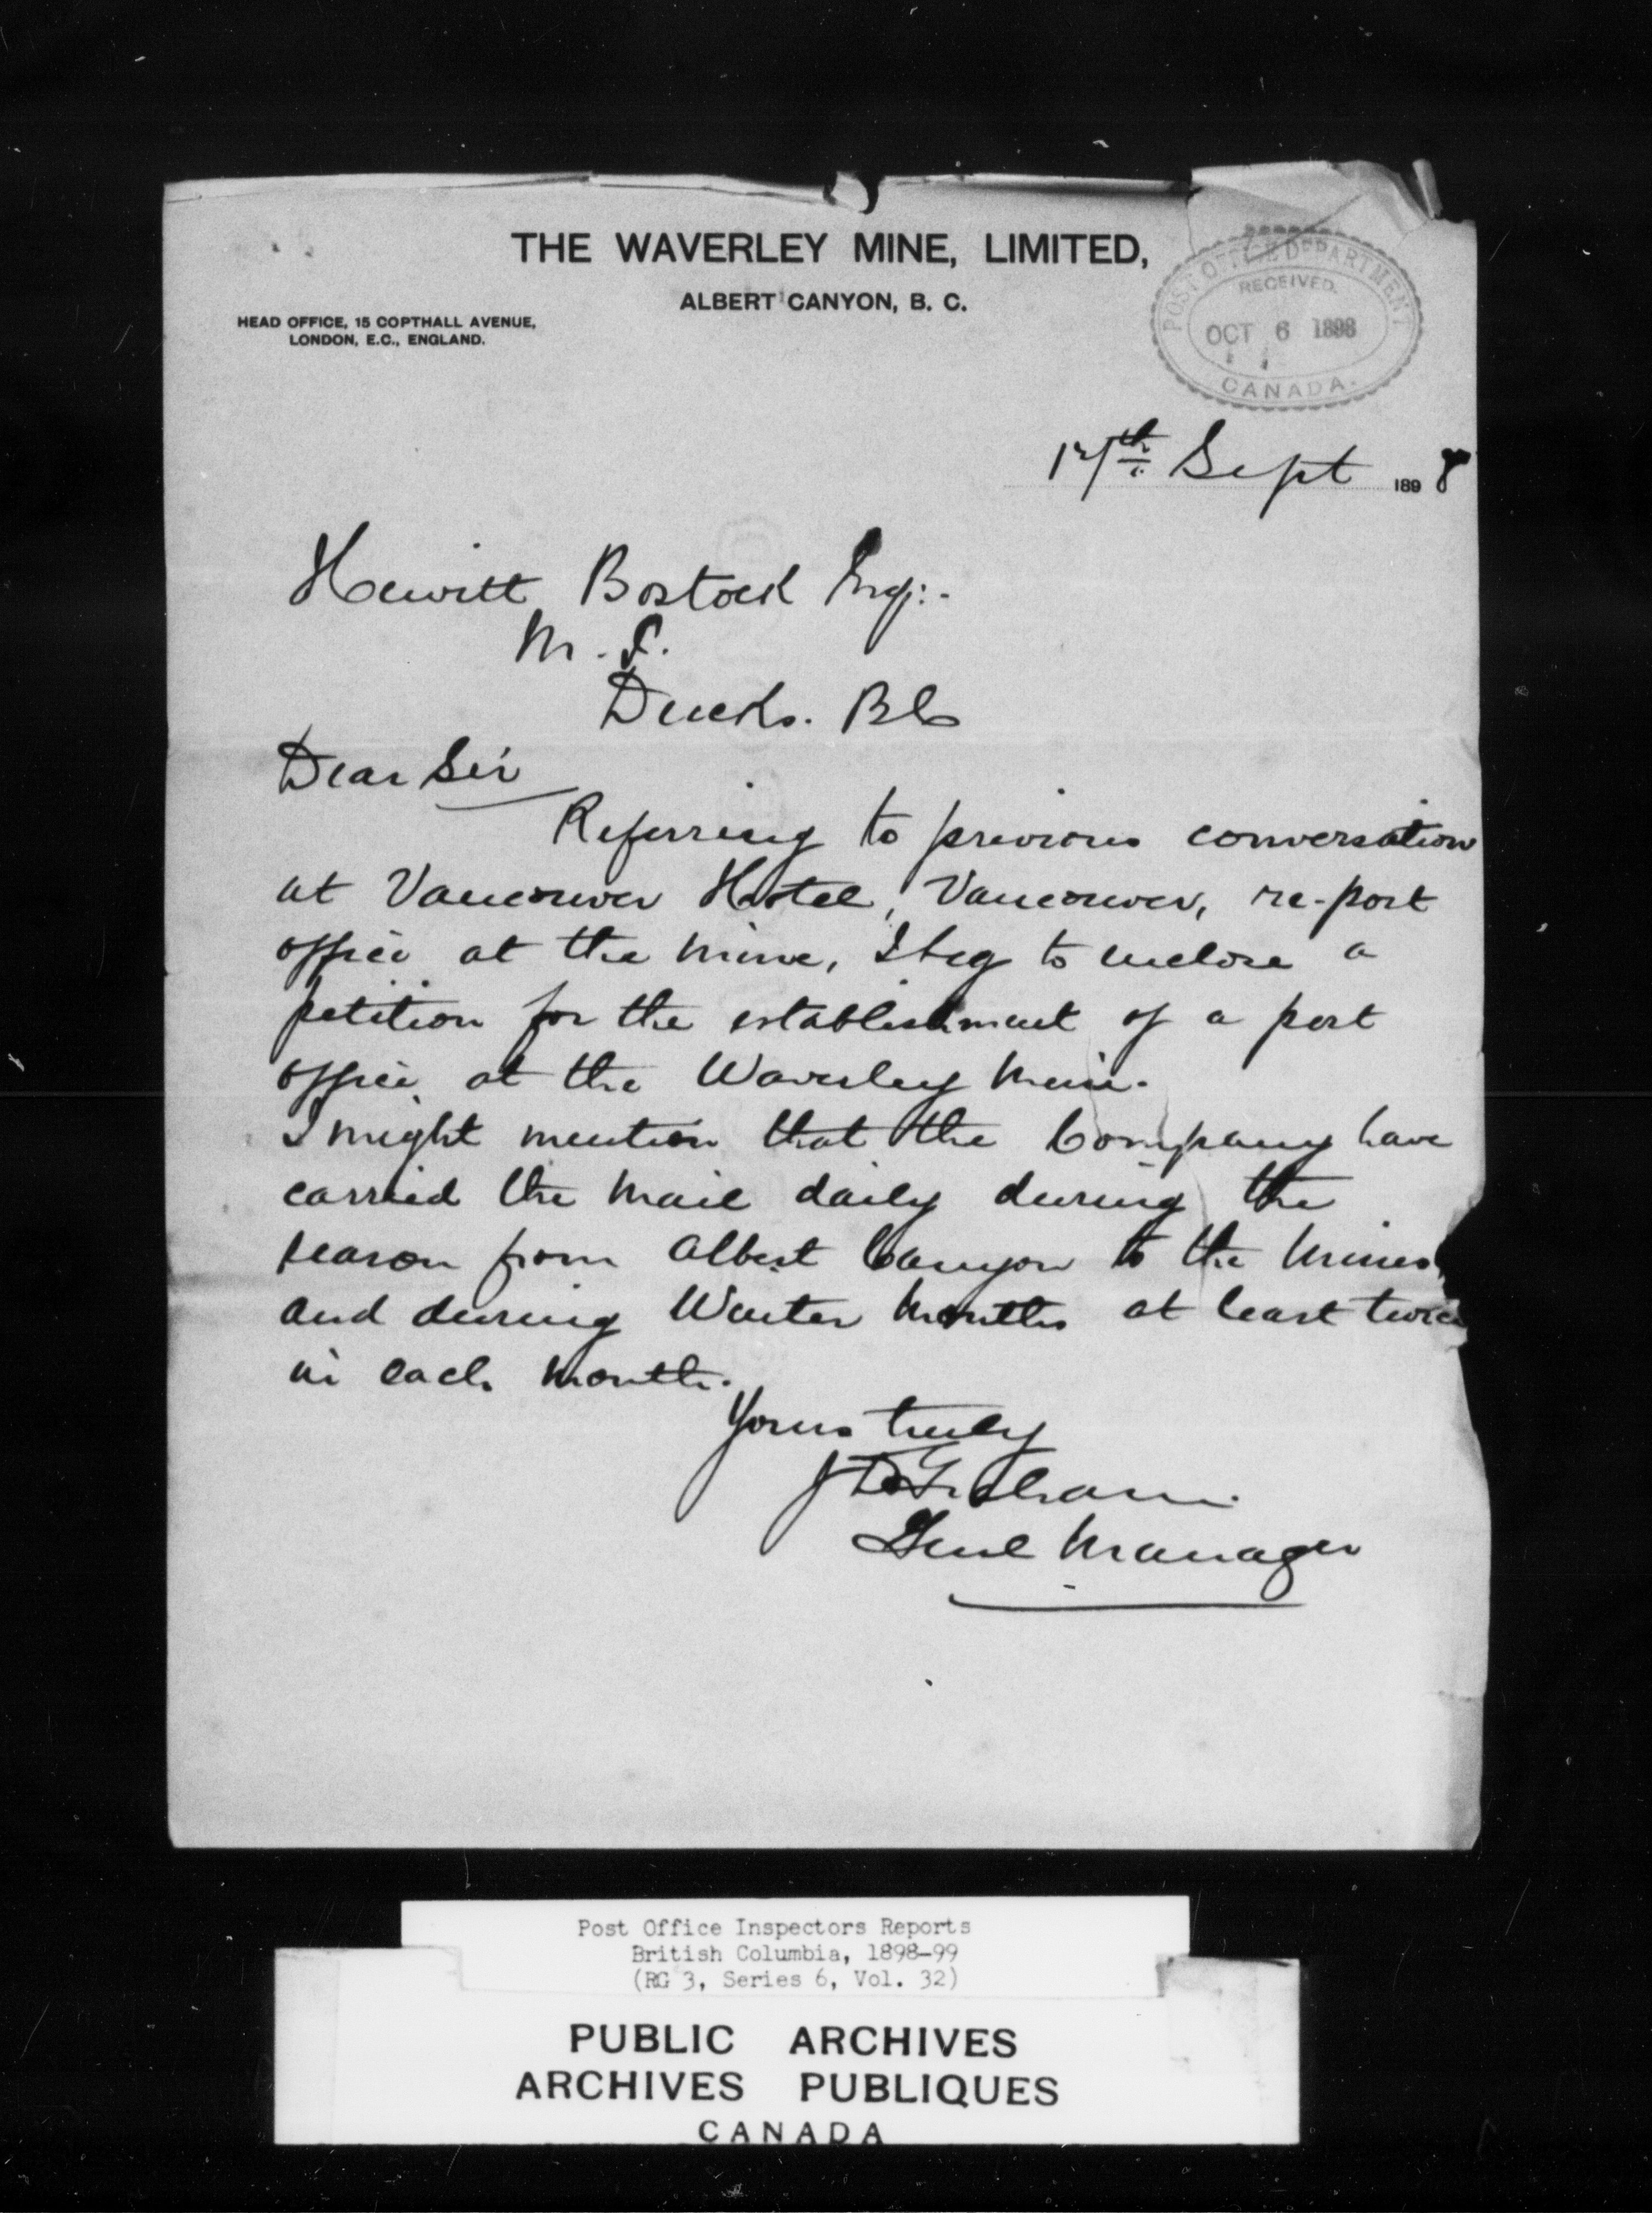 THE WAVERLEY MINE, LIMITED,
ALBERT CANYON, B. C.
HEAD OFFICE, 15 COPTHALL AVENUE,
LONDON, E.C., ENGLAND.
POST OFFICE DEPARTMENT
RECEIVED.
OCT 6 1898
CANADA.
17th Sept 1898
Hewitt Bostock Esq:-
M.P.
Ducks. BC
Dear Sir
Referring to previous conversation
at Vancouver Hotel, Vancouver, re-post
office at the mine, I beg to inclose a
petition for the establishment of a post
office at the Waverley Mine.
I might mention that the Company have
carried the mail daily during the
season from Albert Canyon to the Mines
and during Winter Months at least twice
in each month.
Yours truly
J D Graham.
Genl Manager
Post Office Inspectors Reports
British Columbia, 1898-99
(RG 3, Series 6, Vol. 32)
PUBLIC ARCHIVES
ARCHIVES PUBLIQUES
CANADA